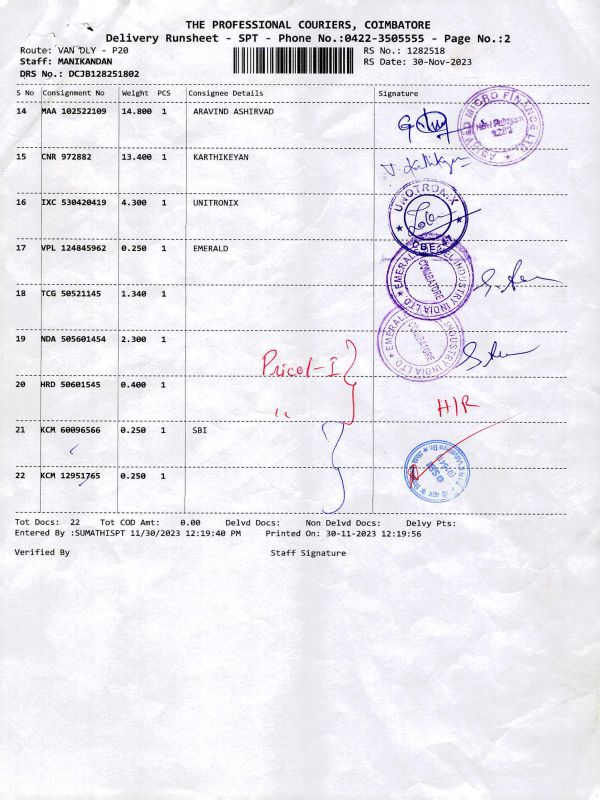 THE PROFESSIONAL COURIERS, COIMBATORE
Delivery Runsheet - SPT - Phone No.:0422-3505555 - Page No.:2
Route: VAN DLY - P20 RS No.: 1282518
Staff: MANIKANDAN RS Date: 30-Nov-2023
DRS No.: DCJB128251802
S No Consignment No Weight PCS Consignee Details Signature
14 MAA 102522109 14.800 1 ARAVIND ASHIRVAD
15 CNR 972882 13.400 1 KARTHIKEYAN
16 IXC 530420419 4.300 1 UNITRONIX
UNOTRONIX
CBE
17 VPL 124845962 0.250 1 EMERALD
COIMBATORE
18 TCG 50521145 1.340 1
19 NDA 505601454 2.300 1
COIMBATORE
Pricol-I
20 HRD 50601545 0.400 1
" H/R
21 KCM 60096566 0.250 1 SBI
22 KCM 12951765 0.250 1
Tot Docs: 22 Tot COD Amt: 0.00 Delvd Docs: Non Delvd Docs: Delvy Pts:
Entered By :SUMATHISPT 11/30/2023 12:19:40 PM Printed On: 30-11-2023 12:19:56
Verified By Staff Signature